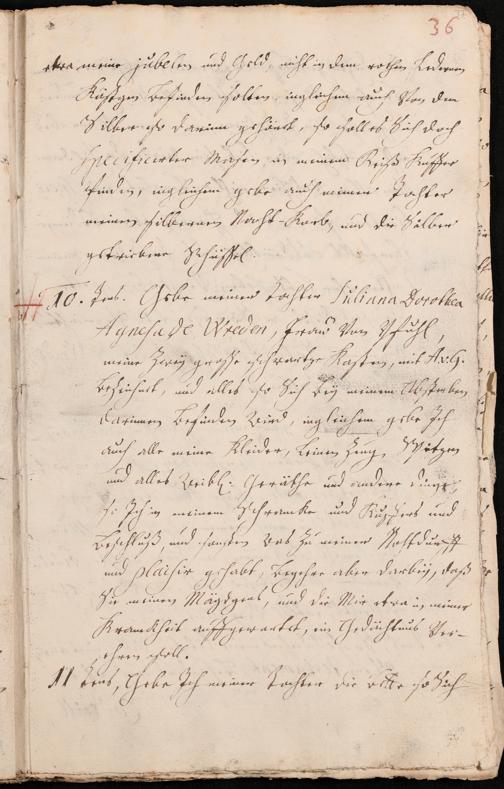 36
etwa meine jubelen und Gold, nicht in dem rothen Ledernen
Kästgen befinden solten, ingleichen auch von dem
Silber so darinn gehöret, so soll es Sich doch
specificirter Maßen in meinem Reiß Kuffer
finden, ingleichen gebe auch meiner Tochter
meinen silbernen Nacht-Korb, und die Silber
getriebene Schüssel.
10. tens. Gebe meiner Tochter Juliana Dorothea
Agnesa de Wreden, Frau Von Pfuhl,
meine Zwey grosse schwartze Kasten, mit A.v.G.
bezeichnet, und alles so Sich bey meinem Absterben
darinnen befinden wird, ingleichen gebe Ich
auch alle meine Kleider, Leinen Zeug, Spitzen
und alles weibl. Geräthe und andere dinge,
so Ich in meinem Schrancke und Kuffers und
Beschluß, und sonsten was zu meiner Nohtdurfft
und plaisir gehabt, begehre aber darbey, daß
Sie meinen Mägdgens, und die Mir etwa in meiner
Kranckheit auffgewartet, ein Gedächtnus Ver-
ehren soll.
11 tens, Gebe Ich meiner Tochter die so Sich